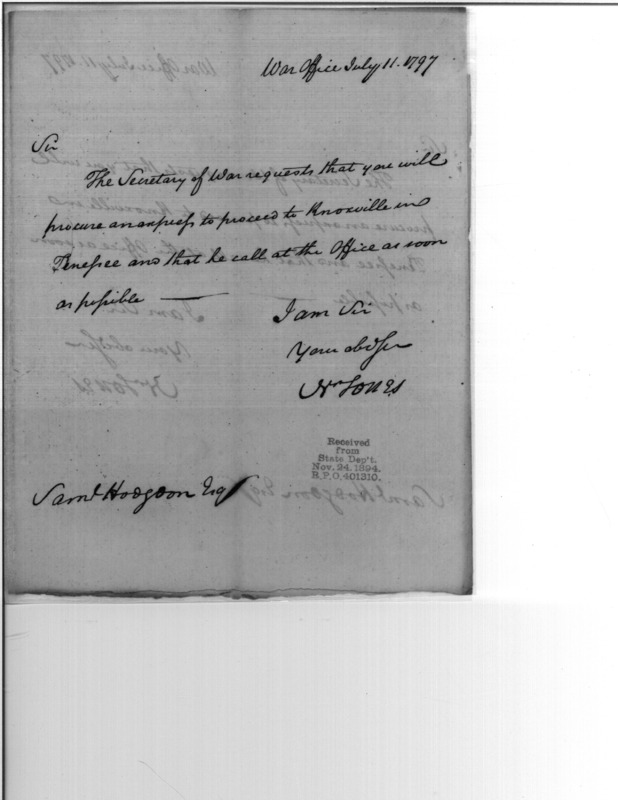 War Office July 11. 1797
Sir
The Secretary of War requests that you will
procure an express to proceed to Knoxville in
Tenessee and that he call at the Office as soon
as possible
I am Sir
Your obd Ser
Wm Jones
Received
from
State Dep't.
Nov. 24. 1894.
R.P.O. 401310.
Saml Hodgdon Esqr